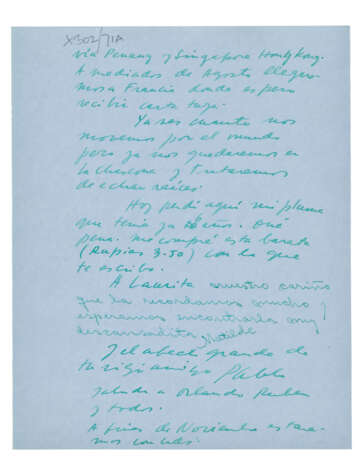 X302/71A
via Penang y Singapore Hong Kong.
A mediados de Agosto llegare-
mos a Francia donde espero
recibir carta tuya.
Ya ves cuanto nos
movemos por el mundo
pero ya nos quedaremos en
la chascona y trataremos
de echar raíces.
Hoy perdí aquí mi pluma
que tenía ya años. Qué
pena. Me compré esta barata
(Rupias 3.50) con la que
te escribo.
A Laurita nuestro cariño
que la recordamos mucho y
esperamos encontrarla muy
descansadita Matilde
Y el abrazo grande de
tu viejo amigo Pablo
Saludos a Orlando Ruben
y todos.
A fines de Noviembre estare-
mos con Uds.